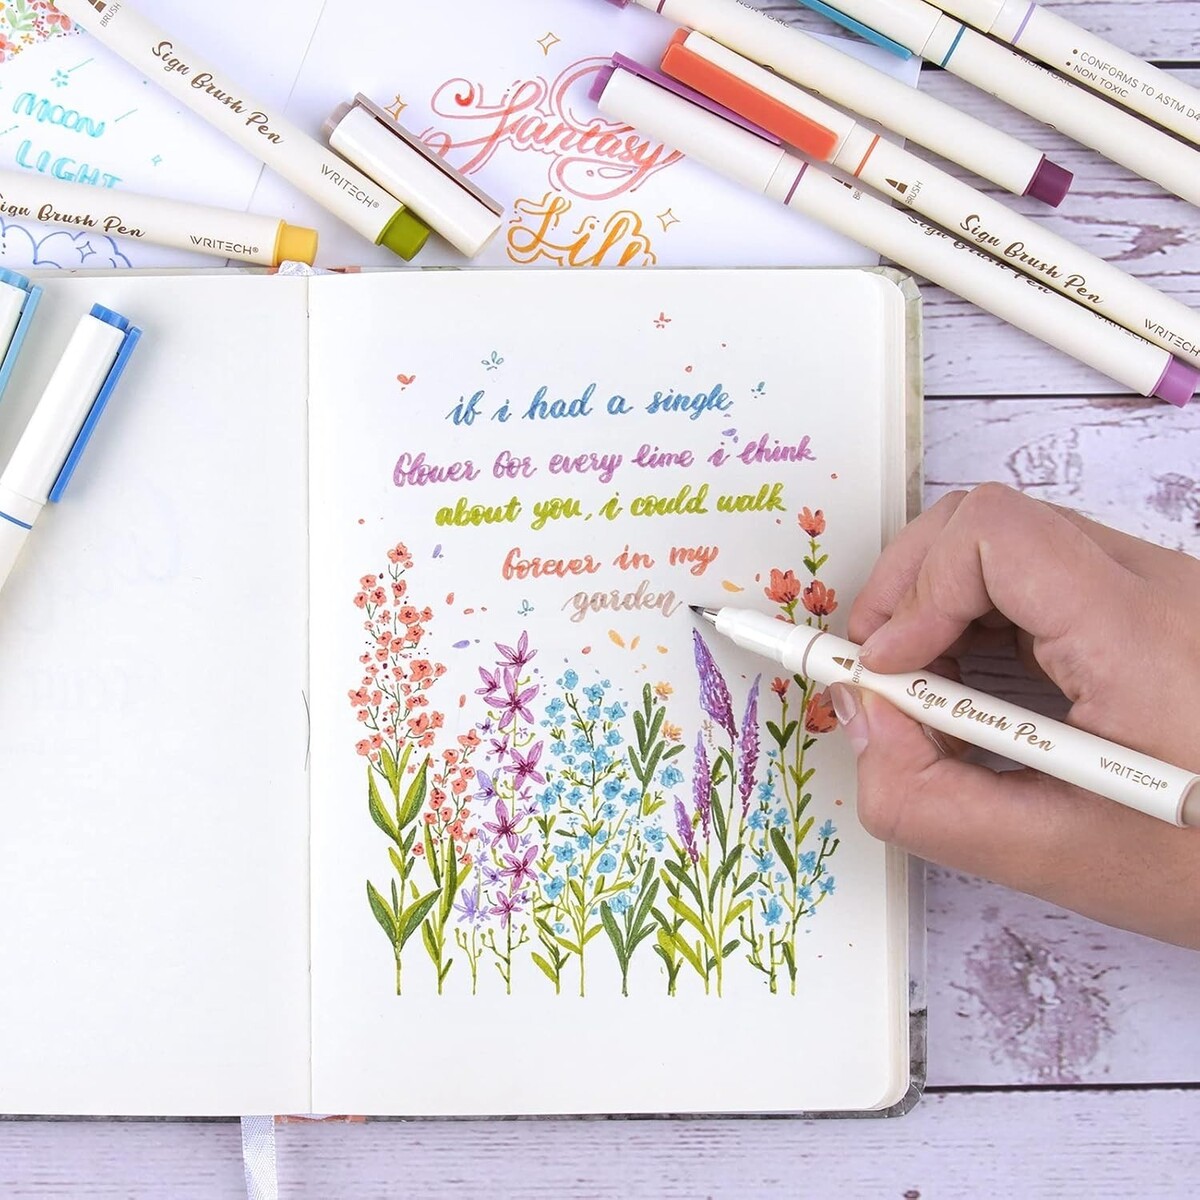 BRUSH
Sign Brush Pen
WRITECH®
MOON
LIGHT
Sign Brush Pen
WRITECH®
Fantasy
Life
NON TOXIC
• CONFORMS TO ASTM D4
• NON TOXIC
NON TOXIC
BRUSH
Sign Brush Pen
WRITECH
Sign Brush Pen
if i had a single
flower for every time i think
about you, i could walk
forever in my
garden
BRUSH
Sign Brush Pen
WRITECH®